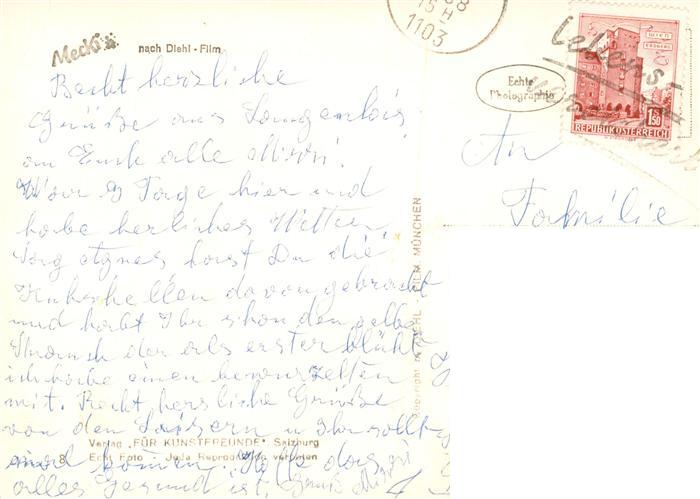 Mecki nach Diehl-Film
Recht herzliche
Grüße aus Langenlois
an Euch alle Mirzi.
War 9 Tage hier und
habe herliches Wetter.
Sag Agnes hast Du die
Kuhschellen davongebracht
und habt Ihr schon den gelben
der als erster blüht
ich habe einen
mit. Recht herzliche Grüße
von den u Ihr sollt
mal kommen. daß
alles Gesund ist.
Verlag „FÜR KUNSTFREUNDE" Salzburg
8 Echt Foto - Jede Reproduktion verboten
Copyright DIEHL-FILM, MÜNCHEN
1103
Echte
Photographie
WIEN
ERDBERG
1.50
REPUBLIK ÖSTERREICH
Lebens-
An
Familie